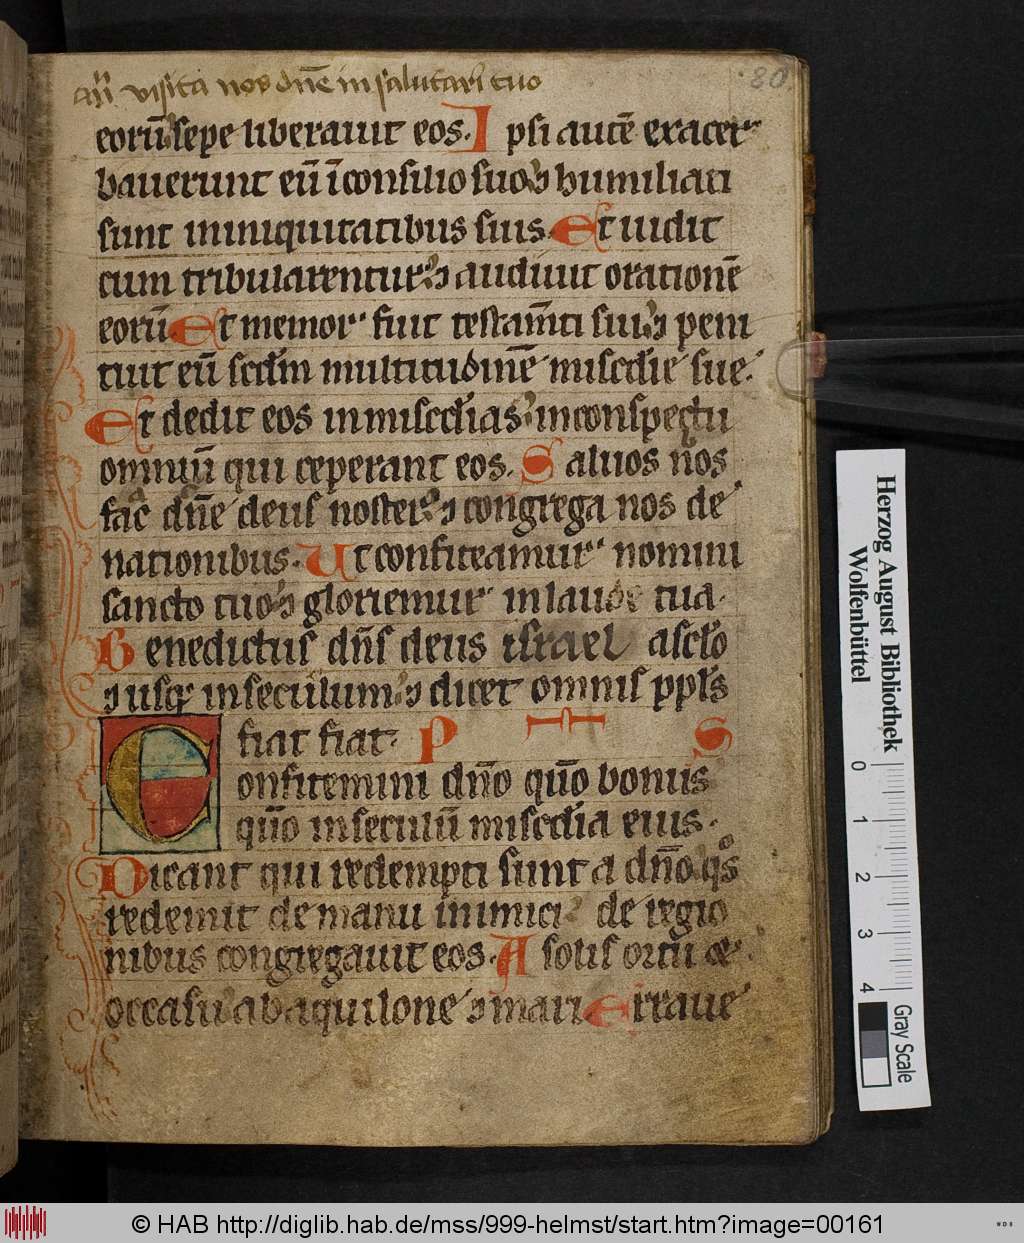 añ visita nos dñe in salutari tuo
80
eorū sepe liberauit eos. Ipsi autē exacer
bauerunt eū ī consilio suo ⁊ humiliati
sunt in iniquitatibus suis. Et uidit
cum tribularentur ⁊ audiuit orationē
eorū. Et memor fuit testam̄ti sui ⁊ peni
tuit eū scd̄m multitudinē misc̄die sue.
Et dedit eos in misc̄dias in conspectu
omniū qui ceperant eos. Saluos nos
fac dñe deus noster ⁊ congrega nos de
nationibus. Ut confiteamur nomini
sancto tuo ⁊ gloriemur in laude tua.
Benedictus dñs deus israel a sc̄lo
⁊ usq in seculum ⁊ dicet omnis ppl̄s
fiat fiat. P T S
Confitemini dño qūo bonus
qūo in seculū misc̄dia eius.
Dicant qui redempti sunt a dño qs
redemit de manu inimici de regio
nibus congregauit eos. A solis ortu et
occasu ab aquilone ⁊ mari. Erraue
Herzog August Bibliothek
Wolfenbüttel
0 1 2 3 4
Gray Scale
© HAB http://diglib.hab.de/mss/999-helmst/start.htm?image=00161
WDB